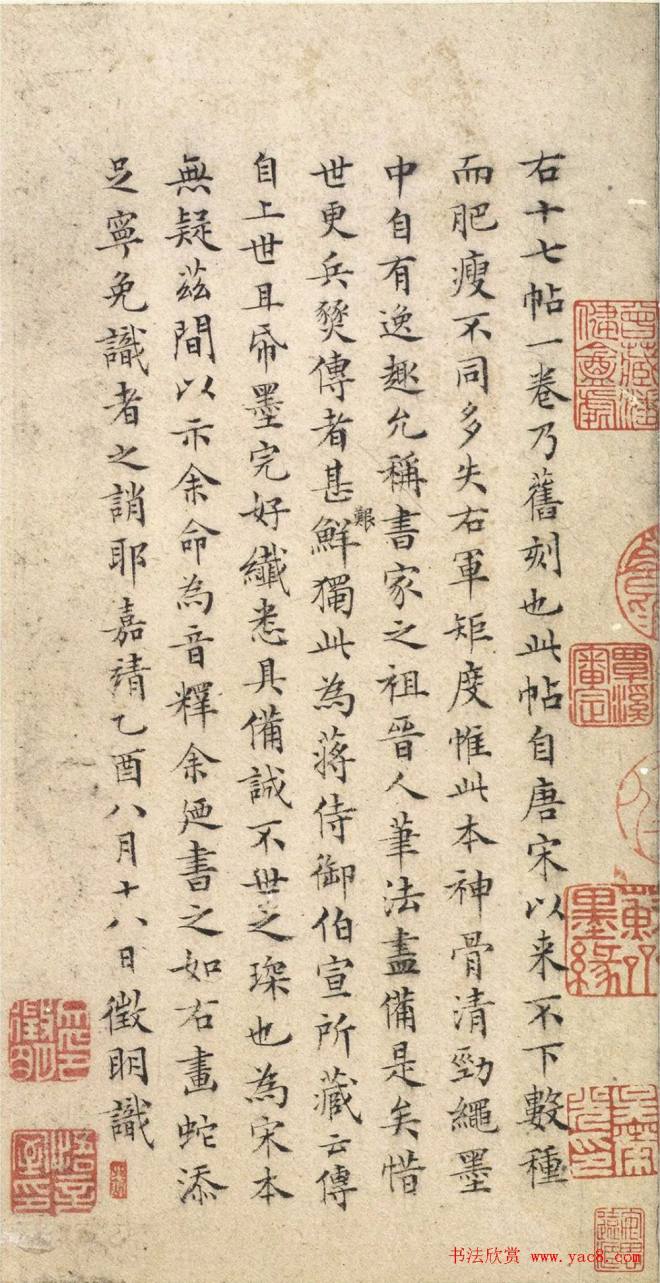 右十七帖一卷乃舊刻也此帖自唐宋以来不下數種
而肥瘦不同多失右軍矩度惟此本神骨清勁繩墨
中自有逸趣允稱書家之祖晉人筆法盡備是矣惜
世更兵燹傳者甚鮮獨此為蔣侍御伯宣所藏云傳
艱
自上世且帋墨完好纖悉具備誠不世之琛也為宋本
無疑茲間以示余命為音釋余廼書之如右畫蛇添
足寧免識者之誚耶嘉靖乙酉八月十八日徵明識
覃溪
審定
墨緣
书法欣赏 www.yac8.com